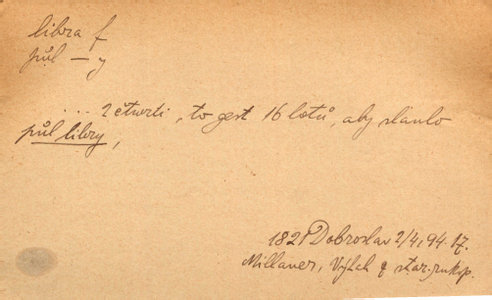 libra f
půl — y
.... 2 čtwrti, to gest 16 lotů, aby stánlo
půl libry,
1821 Dobroslav 2/4, 94. 17.
Millauer, Výtah z star. rukop.